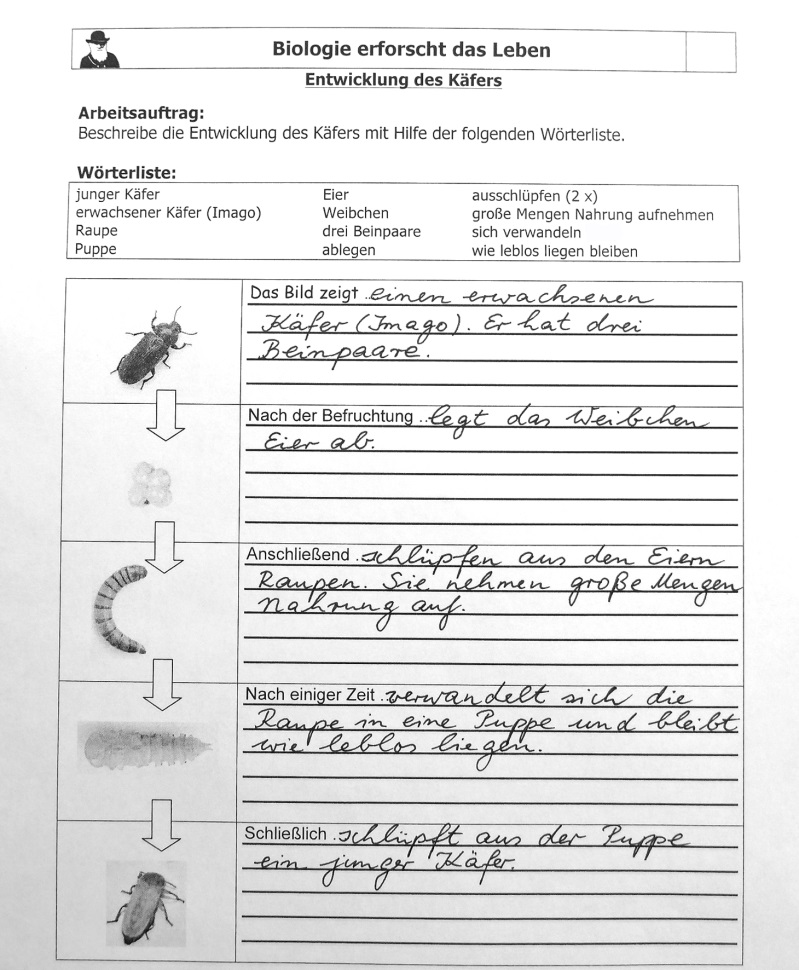 Biologie erforscht das Leben
Entwicklung des Käfers
Arbeitsauftrag:
Beschreibe die Entwicklung des Käfers mit Hilfe der folgenden Wörterliste.
Wörterliste:
junger Käfer Eier ausschlüpfen (2 x)
erwachsener Käfer (Imago) Weibchen große Mengen Nahrung aufnehmen
Raupe drei Beinpaare sich verwandeln
Puppe ablegen wie leblos liegen bleiben
Das Bild zeigt ..einen erwachsenen
Käfer (Imago). Er hat drei
Beinpaare.
Nach der Befruchtung ..legt das Weibchen
Eier ab.
Anschließend .schlüpfen aus den Eiern
Raupen. Sie nehmen große Mengen
Nahrung auf.
Nach einiger Zeit ..verwandelt sich die
Raupe in eine Puppe und bleibt
wie leblos liegen.
Schließlich .schlüpft aus der Puppe
ein junger Käfer.